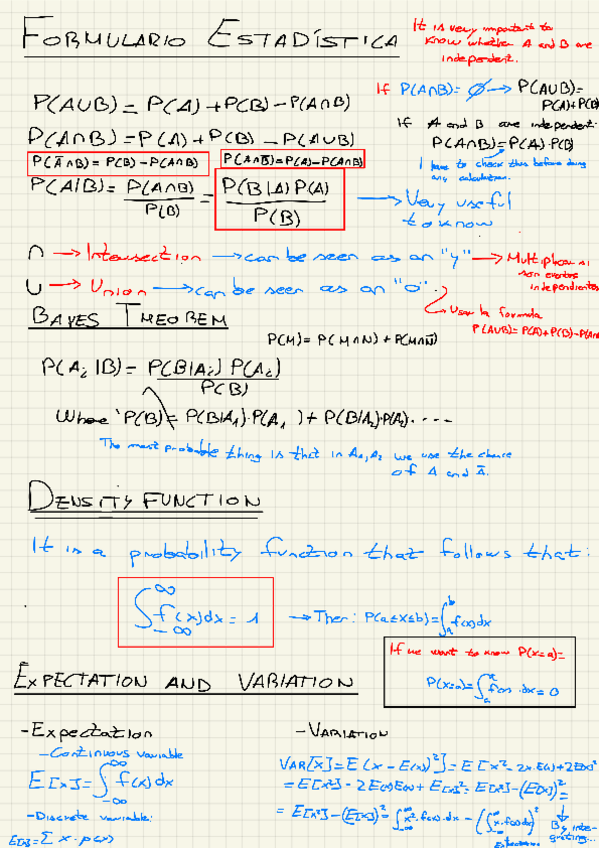 FORMULARIO ESTADÍSTICA
It is very important to
know whether A and B are
independent.
If P(A∩B)= ∅ → P(A∪B)=
P(A)+P(B)
P(A∪B) = P(A) + P(B) - P(A∩B)
If A and B are independent:
P(A∩B)=P(A)·P(B)
I have to check this before doing
any calculation.
P(A∩B) = P(A) + P(B) - P(A∪B)
P(Ā∩B) = P(B) - P(A∩B)
P(A∩B̄) = P(A) - P(A∩B)
P(A|B) = P(A∩B)/P(B) = P(B|A) P(A)/P(B) → Very useful
to know
∩ → Intersection → can be seen as an "y" → Multiplicar si
son eventos
independientes
∪ → Union → can be seen as an "o".
Usar la formula
P(A∪B) = P(A)+P(B)-P(A∩
BAYES THEOREM
P(M) = P(M∩N) + P(M∩N̄)
P(Aᵢ|B) = P(B|Aᵢ) P(Aᵢ)/P(B)
Where P(B) = P(B|A₁)·P(A₁) + P(B|A₂)·P(A₂) ....
The most probable thing is that in A₁, A₂ we use the chance
of A and Ā.
DENSITY FUNCTION
It is a probability function that follows that:
∫_{-∞}^{∞} f(x)dx = 1 → Then: P(a≤X≤b) = ∫_a^b f(x)dx
If we want to know P(x=a)=
P(x=a) = ∫ f(x)·dx = 0
EXPECTATION AND VARIATION
- Expectation
- VARIATION
- Continuous variable
E[X] = ∫_{-∞}^{∞} f(x) dx
VAR[X] = E(X - E(X))²] = E[X² - 2X·E(X) + 2E(X)²
= E[X²] - 2E(X)E(X) + E[X]² = E[X²] - (E[X])²
- Discrete variable:
= E[X²] - (E[X])² = ∫_{-∞}^{∞} x²·f(x)·dx - (∫_{-∞}^{∞} x·f(x)dx)²
By inte-
grating...
E[X] = Σ x · p(x)